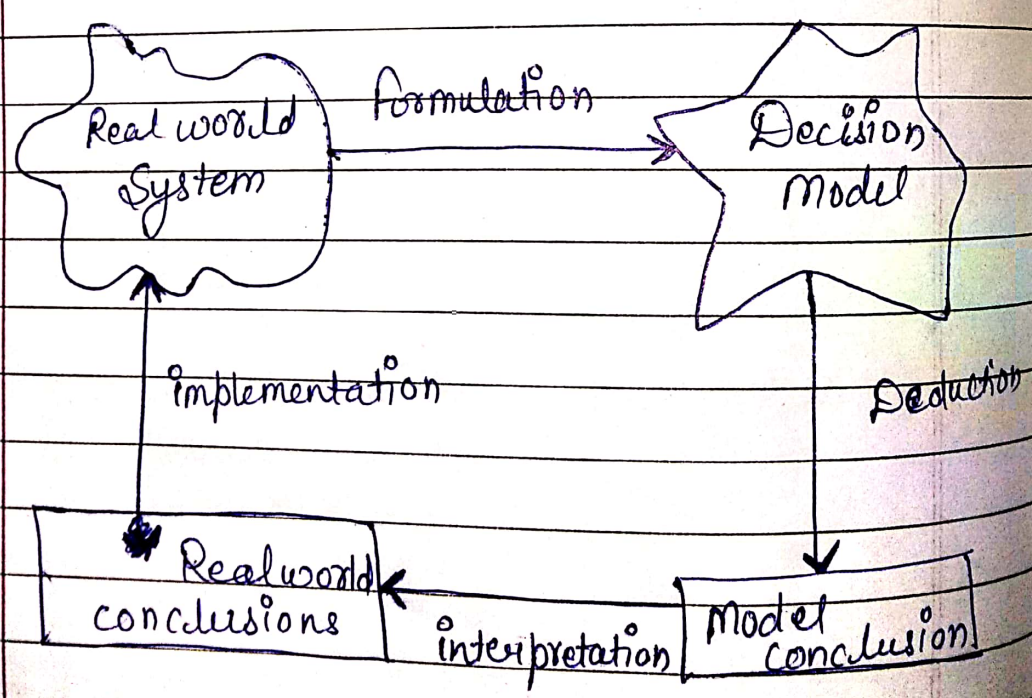 formulation
Real world
System
Decision
Model
implementation
Deduction
Real world
conclusions
interpretation
Model
conclusion